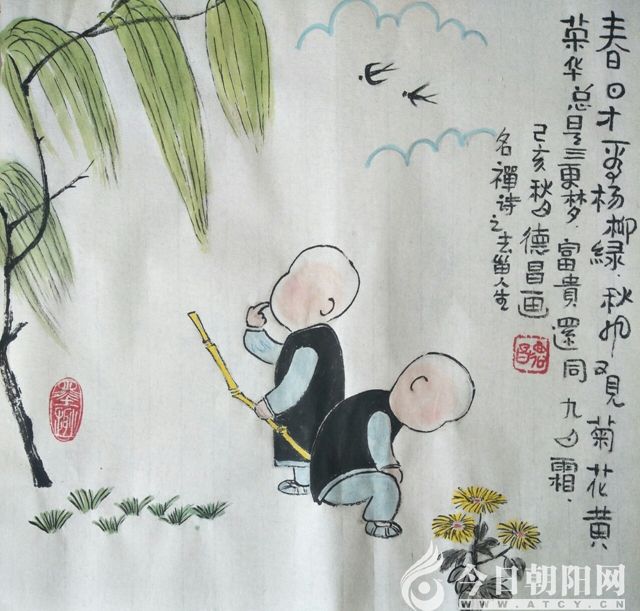 春日才看杨柳緑.秋风又見菊花黄
荣华总是三更梦.富貴還同九月霜.
己亥秋月德昌画
名禪诗之去畄人生
今日朝阳网
WWW.ATCY.CN